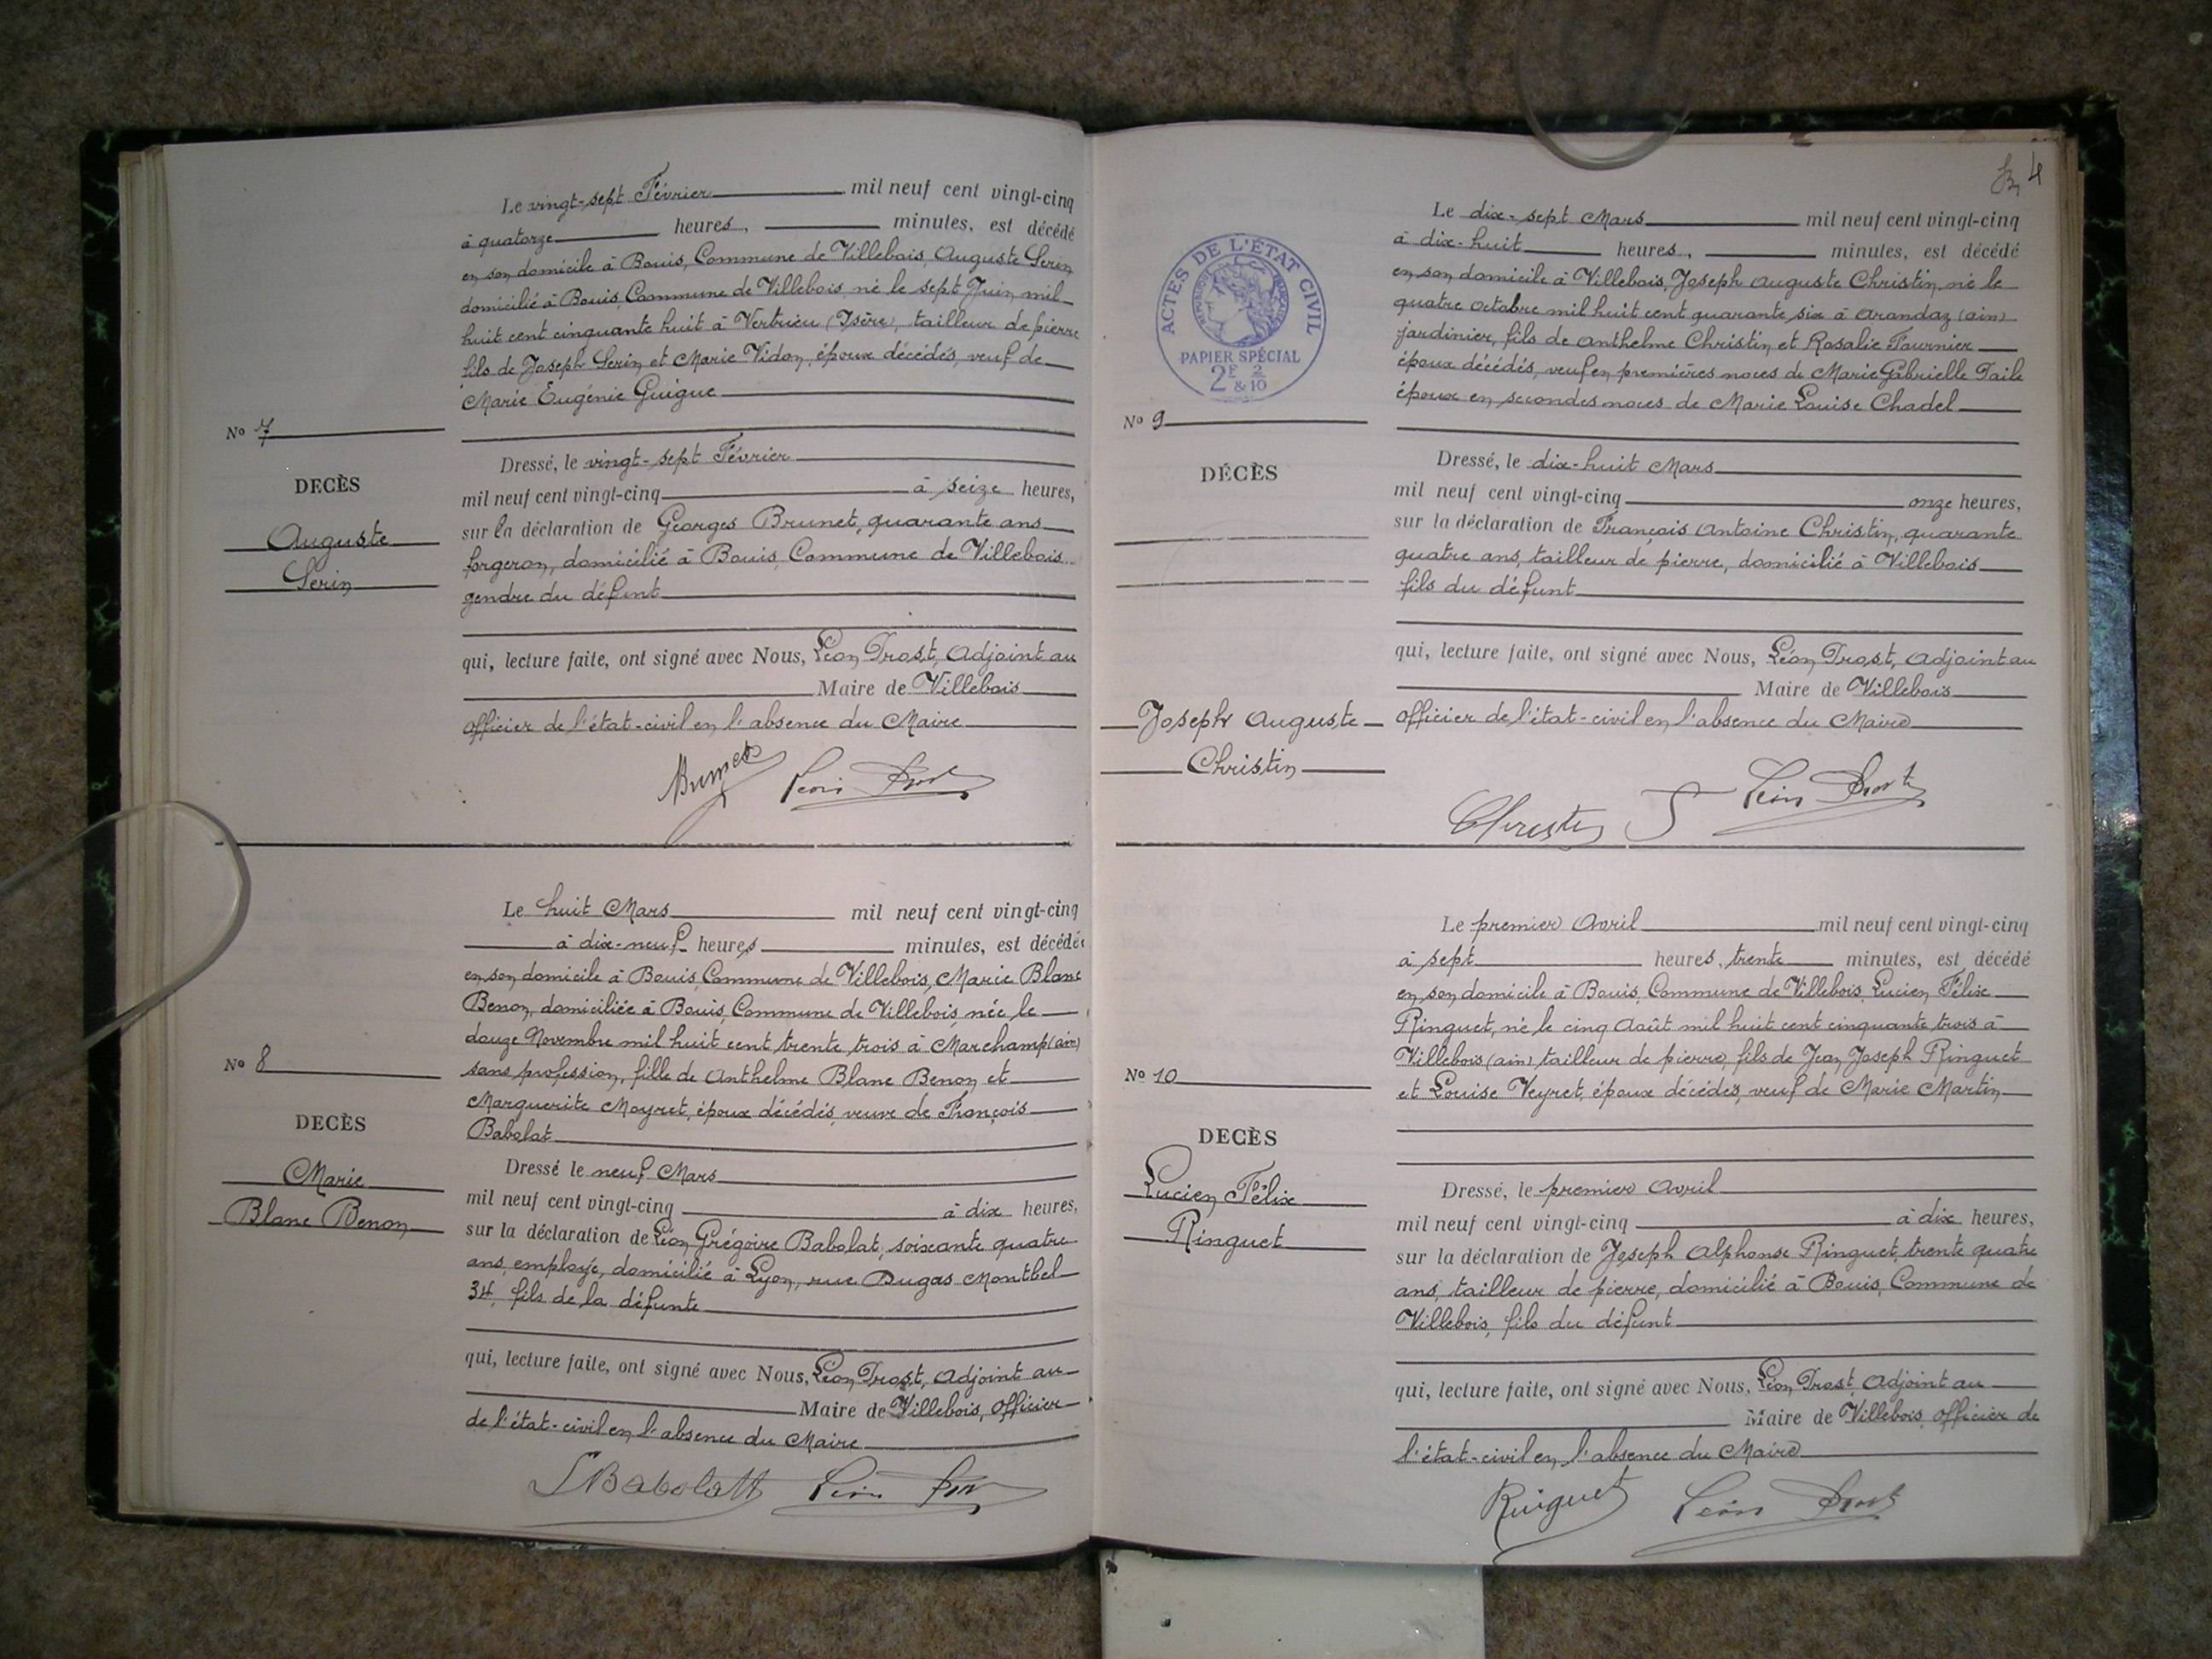 Le vingt-sept Février mil neuf cent vingt-cinq
à quatorze heures, minutes, est décédé
en son domicile à Bouis, Commune de Villebois, Auguste Serin
domicilié à Bouis, Commune de Villebois, né le sept Juin mil
huit cent cinquante huit à Vertrieu (Isère), tailleur de pierre
fils de Joseph Serin et Marie Vidon, époux décédés, veuf de
Marie Eugénie Guigue
No 7
DECÈS
Auguste
Serin
Dressé, le vingt-sept Février
mil neuf cent vingt-cinq à seize heures,
sur la déclaration de Georges Brunet, quarante ans
forgeron, domicilié à Bouis, Commune de Villebois
gendre du défunt
qui, lecture faite, ont signé avec Nous, Léon Drost, Adjoint au
Maire de Villebois
officier de l'état-civil en l'absence du Maire
Brunet Léon Drost
Le huit Mars mil neuf cent vingt-cinq
à dix-neuf heures minutes, est décédée
en son domicile à Bouis, Commune de Villebois, Marie Blanc
Benon, domiciliée à Bouis, Commune de Villebois, née le
douze Novembre mil huit cent trente trois à Marchamp (ain)
sans profession, fille de Anthelme Blanc Benon et
Marguerite Moyret, époux décédés, veuve de François
Babolat
No 8
DECÈS
Marie
Blanc Benon
Dressé le neuf Mars
mil neuf cent vingt-cinq à dix heures,
sur la déclaration de Léon Grégoire Babolat, soixante quatre
ans, employé, domicilié à Lyon, rue Dugas Montbel
34, fils de la défunte
qui, lecture faite, ont signé avec Nous, Léon Drost, Adjoint au
Maire de Villebois, officier
de l'état-civil en l'absence du Maire
Babolat Léon Drost
4
ACTES DE L'ÉTAT CIVIL
RÉPUBLIQUE FRANÇAISE
PAPIER SPÉCIAL
2F & 2/10
Le dix-sept Mars mil neuf cent vingt-cinq
à dix-huit heures, minutes, est décédé
en son domicile à Villebois, Joseph Auguste Christin, né le
quatre octobre mil huit cent quarante six à Arandaz (ain)
jardinier, fils de Anthelme Christin et Rosalie Fournier
époux décédés, veuf en premières noces de Marie Gabrielle
époux en secondes noces de Marie Louise Chadel
No 9
DÉCÈS
Joseph Auguste
Christin
Dressé, le dix-huit Mars
mil neuf cent vingt-cinq onze heures,
sur la déclaration de François Antoine Christin, quarante
quatre ans, tailleur de pierre, domicilié à Villebois
fils du défunt
qui, lecture faite, ont signé avec Nous, Léon Drost, Adjoint au
Maire de Villebois
officier de l'état-civil en l'absence du Maire
Christin Léon Drost
Le premier Avril mil neuf cent vingt-cinq
à sept heures, trente minutes, est décédé
en son domicile à Bouis, Commune de Villebois, Lucien Félix
Ringuet, né le cinq Août mil huit cent cinquante trois à
Villebois (ain) tailleur de pierre, fils de Jean Joseph Ringuet
et Louise Veyret, époux décédés, veuf de Marie Martin
No 10
DECÈS
Lucien Félix
Ringuet
Dressé, le premier Avril
mil neuf cent vingt-cinq à dix heures,
sur la déclaration de Joseph Alphonse Ringuet, trente quatre
ans, tailleur de pierre, domicilié à Bouis, Commune de
Villebois, fils du défunt
qui, lecture faite, ont signé avec Nous, Léon Drost, Adjoint au
Maire de Villebois, officier de
l'état-civil en l'absence du Maire
Ringuet Léon Drost